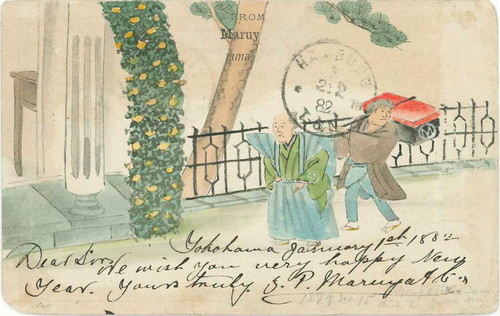 FROM
Maruy
ama
HAMBURG
2 2
82
Yokohama January 1st 1882
Dear Sirs,
We wish you very happy New
Year. Yours truly. P. Maruya & Co.